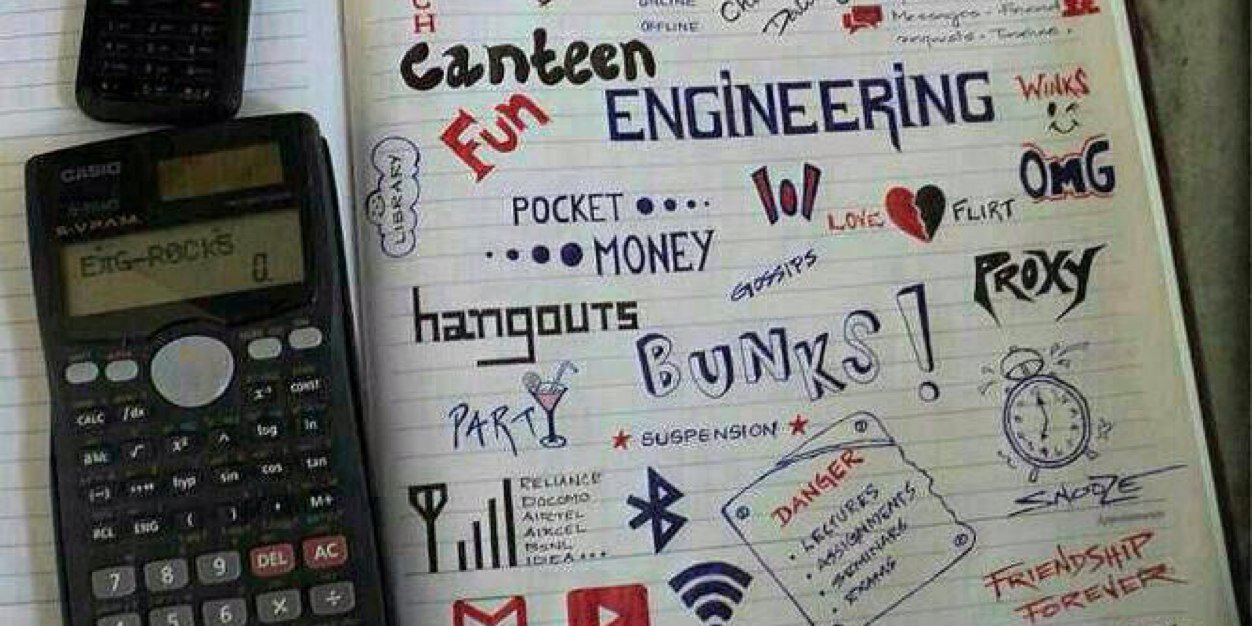 CH
ONLINE
OFFLINE
Messages. Friend
requests. Timeline.
canteen
Fun
ENGINEERING
WINKS
OMG
LIBRARY
POCKET
MONEY
LOVE
FLIRT
GOSSIPS
PROXY
hangouts
BUNKS!
PARTY
SUSPENSION
RELIANCE
DOCOMO
AIRTEL
AIRCEL
BSNL
IDEA...
DANGER
• LECTURES
• ASSIGNMENTS
• SEMINARS
• EXAMS
SNOOZE
FRIENDSHIP
FOREVER
CASIO
S-V.P.A.M.
ENG-ROCKS
0.
CALC ∫dx
x⁻¹ CONST
√ x² ^ log ln
(-) hyp sin cos tan
RCL ENG ( ) , M+
7 8 9 DEL AC
4 5 6 × ÷